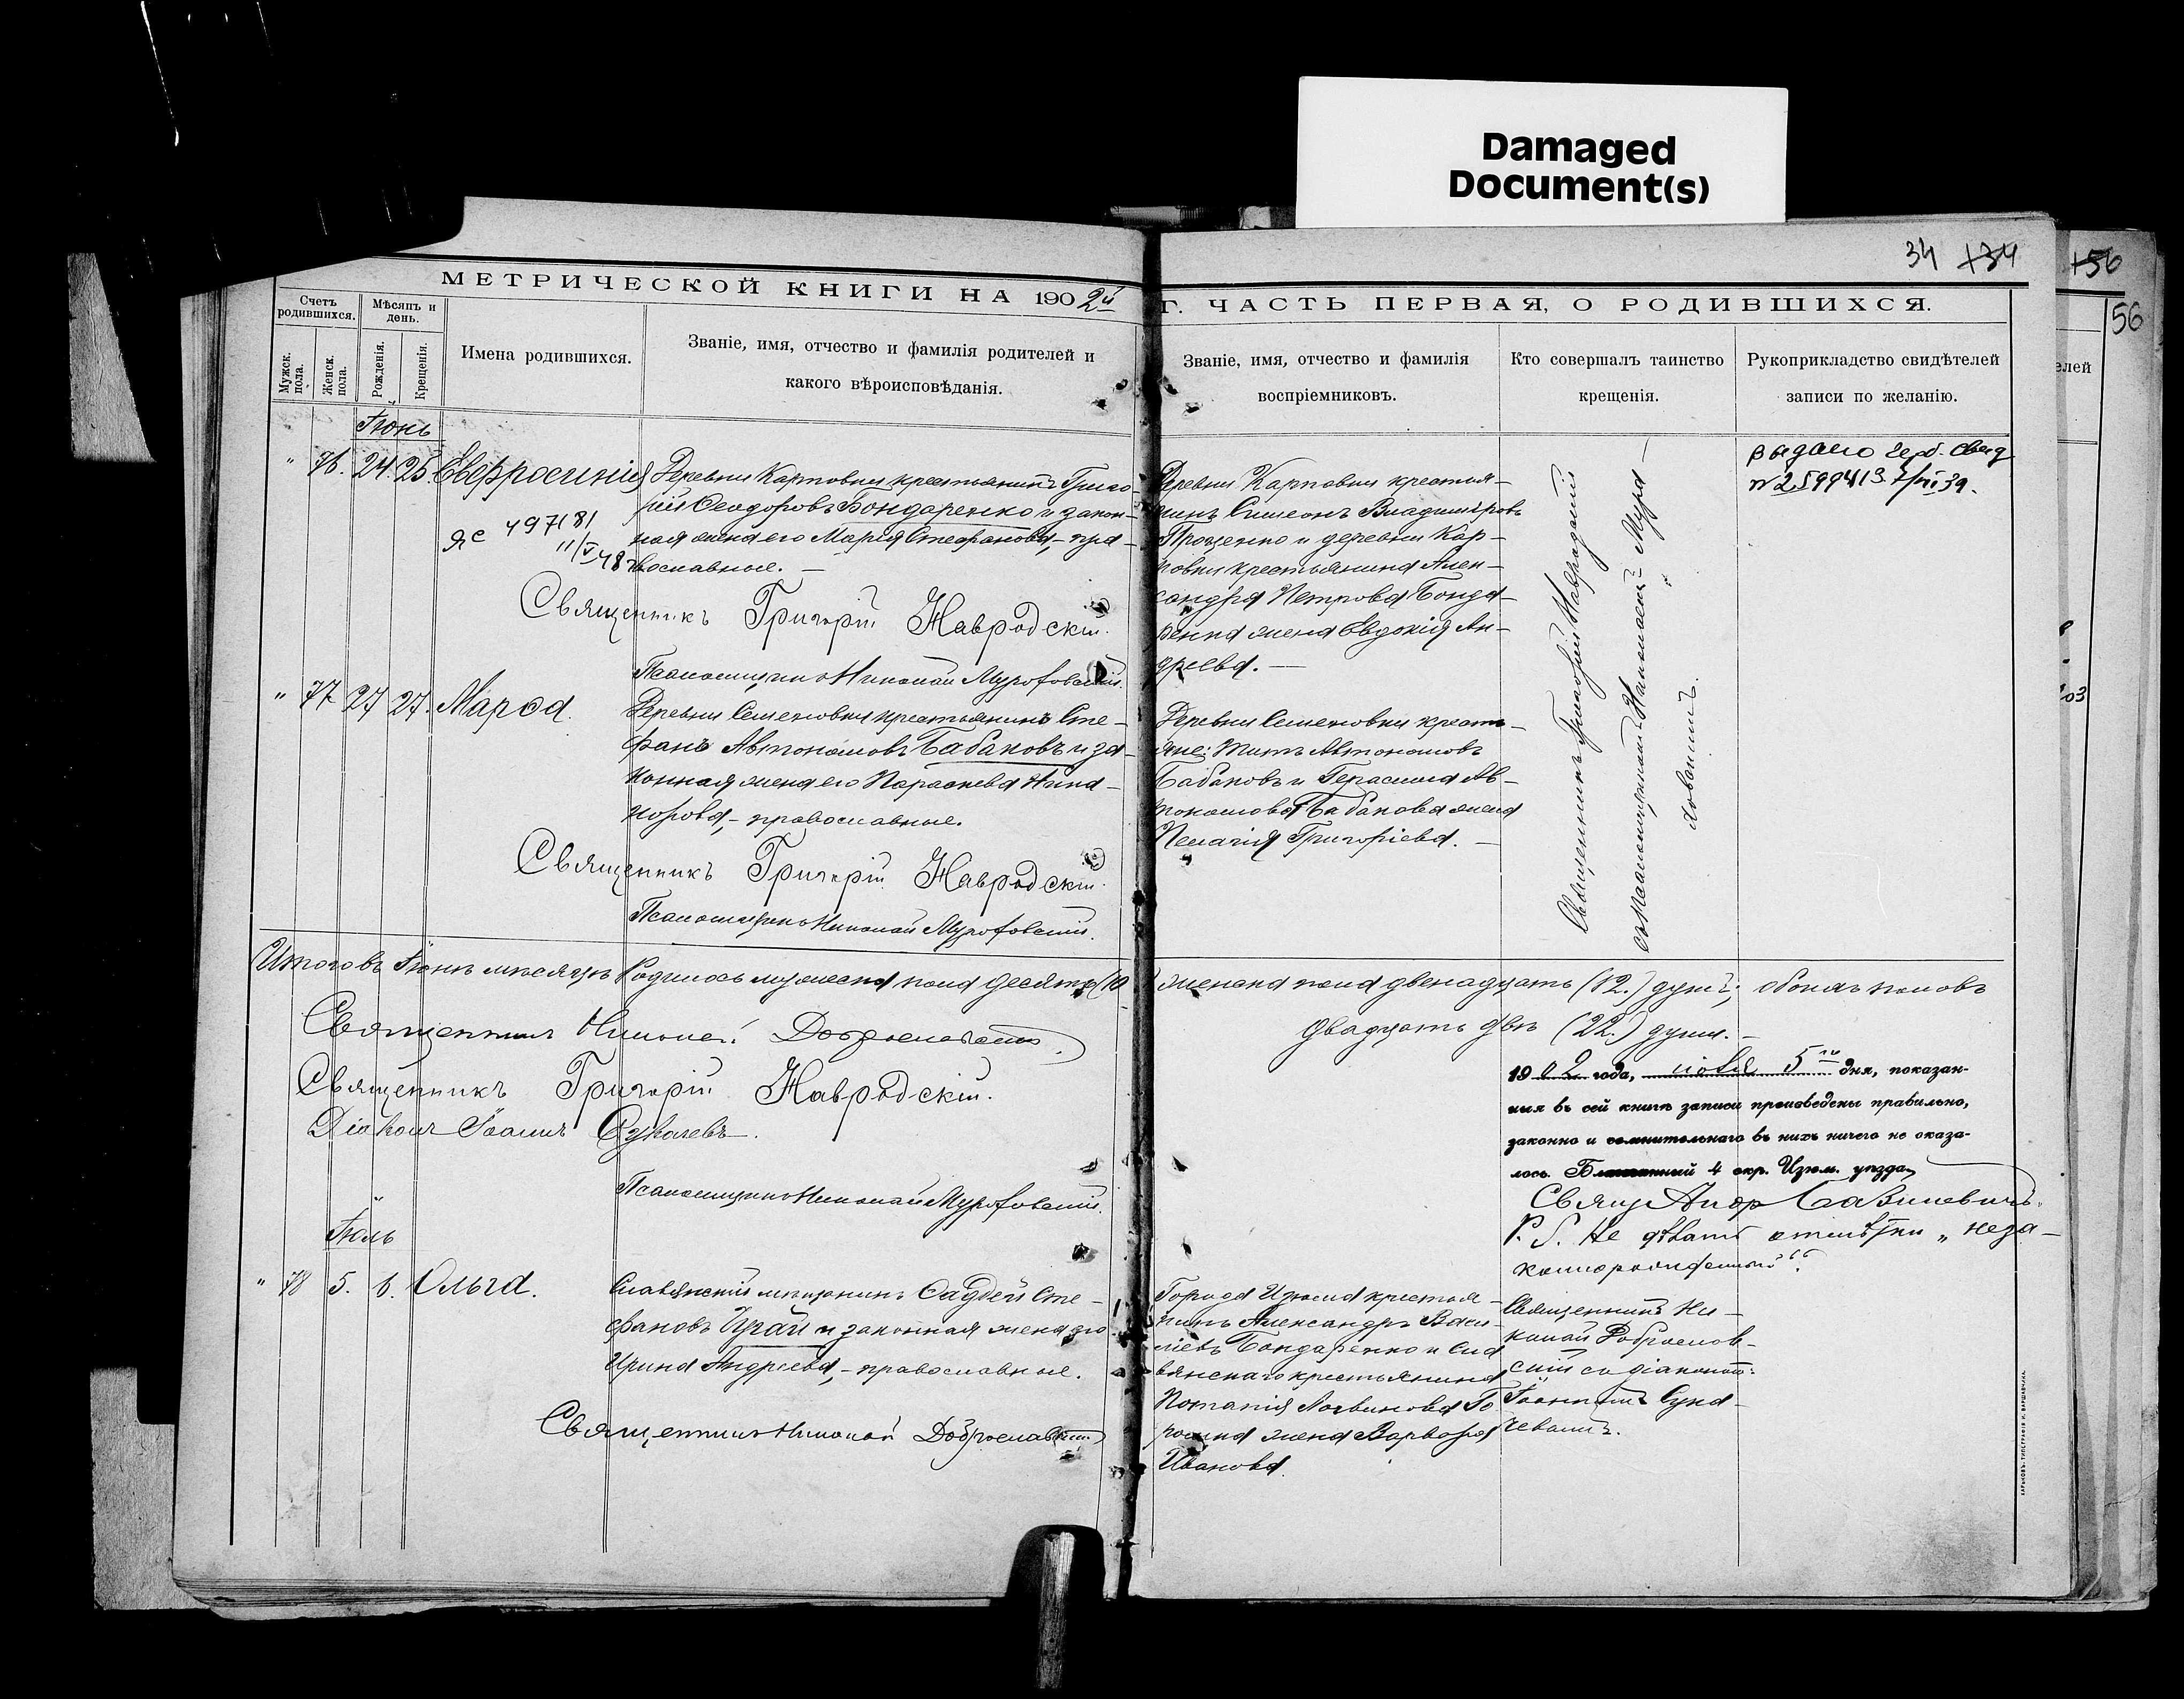 Damaged
Document(s)
34 134 156
56
МЕТРИЧЕСКОЙ КНИГИ НА 1902й
Г. ЧАСТЬ ПЕРВАЯ, О РОДИВШИХСЯ.
Счетъ родившихся.
Мужск. пола.
Женск. пола.
Мѣсяцъ и день.
Рожденія.
Крещенія.
Имена родившихся.
Званіе, имя, отчество и фамилія родителей и
какого вѣроисповѣданія.
Званіе, имя, отчество и фамилія
воспріемниковъ.
Кто совершалъ таинство
крещенія.
Рукоприкладство свидѣтелей
записи по желанію.
елей
Іюнь
" 76. 24. 25. Евфросинія
Деревни Карповки крестьянинъ Григо-
рій Ѳеодоровъ Бондаренко и закон-
ная жена его Марія Стефанова, пра-
вославные. —
яс 497181
11/V 48
Священникъ Григорій Навродскій.
Псаломщикъ Николай
Деревни Карповки крестья-
нинъ Симеонъ Владиміровъ
Проценко и деревни Кар-
повки крестьянина Алек-
сандра Петрова Бонда-
ренка жена Евдокія Ан-
дреева. —
Священникъ Григорій Навродскій
съ псаломщикомъ Николаемъ
выдано герб. свид
№ 2599413
" 77 27 27. Марѳа.
Деревни Семеновки крестьянинъ Сте-
фанъ Автономовъ Бабаковъ и за-
конная жена его Параскева Ника-
норова, - православные.
Священникъ Григорій Навродскій.
Псаломщикъ Николай
Деревни Семеновки кресть-
яне: Титъ Автономовъ
Бабаковъ и Герасима Ав-
тономова Бабакова жена
Пелагія Григоріева. —
Итого въ Іюнѣ мѣсяцѣ родилось мужеска пола десять (10
женска пола двенадцать (12.) душъ; обоихъ половъ
двадцать двѣ (22.) души. —
Священникъ Николай Доброславскій.
Священникъ Григорій Навродскій.
Діаконъ Іоаннъ Сукачевъ.
Псаломщикъ Николай
1902 года, 5го дня, показан-
ныя въ сей книгѣ записи произведены правильно,
законно и сомнительнаго въ нихъ ничего не оказа-
лось. 4 окр. Изюм. уѣзда,
Свящ
P. S. Не дѣлать отмѣтки „неза-
коннорожденный“.
Іюль
" 78 5. 6. Ольга.
Славянскій мѣщанинъ Фаддей Сте-
фановъ и законная жена его
Ирина Андреева, - православные.
Священникъ Николай Доброславскій
Города Изюма крестья-
нинъ Александръ Васи-
ліевъ Бондаренко и Сла
вянскаго крестьянина
Потапія Логвинова
жена Варвара
Иванова.
Священникъ Ни-
колай Доброслав-
скій съ діакономъ
Іоанномъ Сука-
чевымъ.
ХАРЬКОВЪ. ТИПОГРАФІЯ И. ВАРШАВЧИКА.